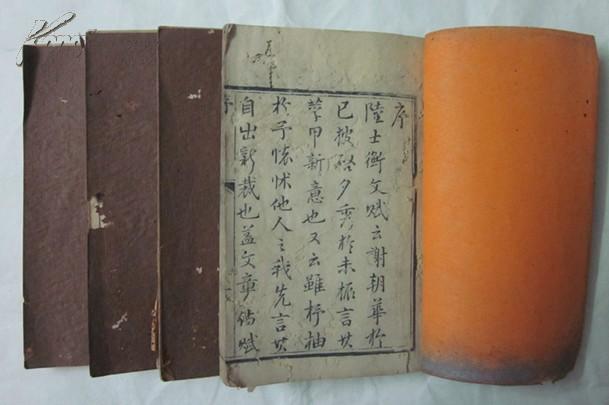 序
陸士衡文賦云謝朝華於
已披啓夕秀於未振言其
孳甲新意也又云雖杼柚
於予懷怵他人之我先言其
自出新裁也蓋文章 賦
序